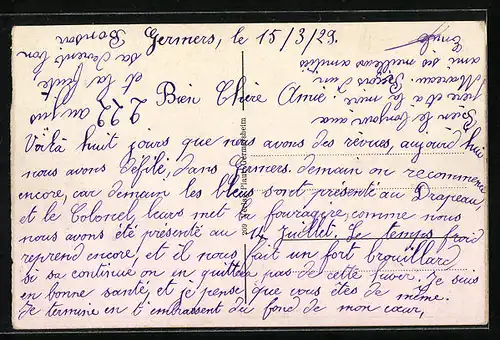 Germers, le 15/3/29.
Bien Chère Amie.
Voilà huit jours que nous avons des revues, aujourd'hui
nous avons défilé, dans Germers. demain on recommence
encore, car demain les bleus sont présenté au Drapeau,
et le Colonel, leurs met la fouragère, comme nous
nous avons été présenté au 14 Juillet. Le temps froid
reprend encore, et il nous fait un fort brouillard
si sa continue on en quittera pas de cette hiver. Je suis
en bonne santé, et je pense que vous êtes de même.
Je termine en t'embrassent du fond de mon cœur,
Bien le bonjour aux
Reçois d'un
ami ses meilleurs amitiés
Emile